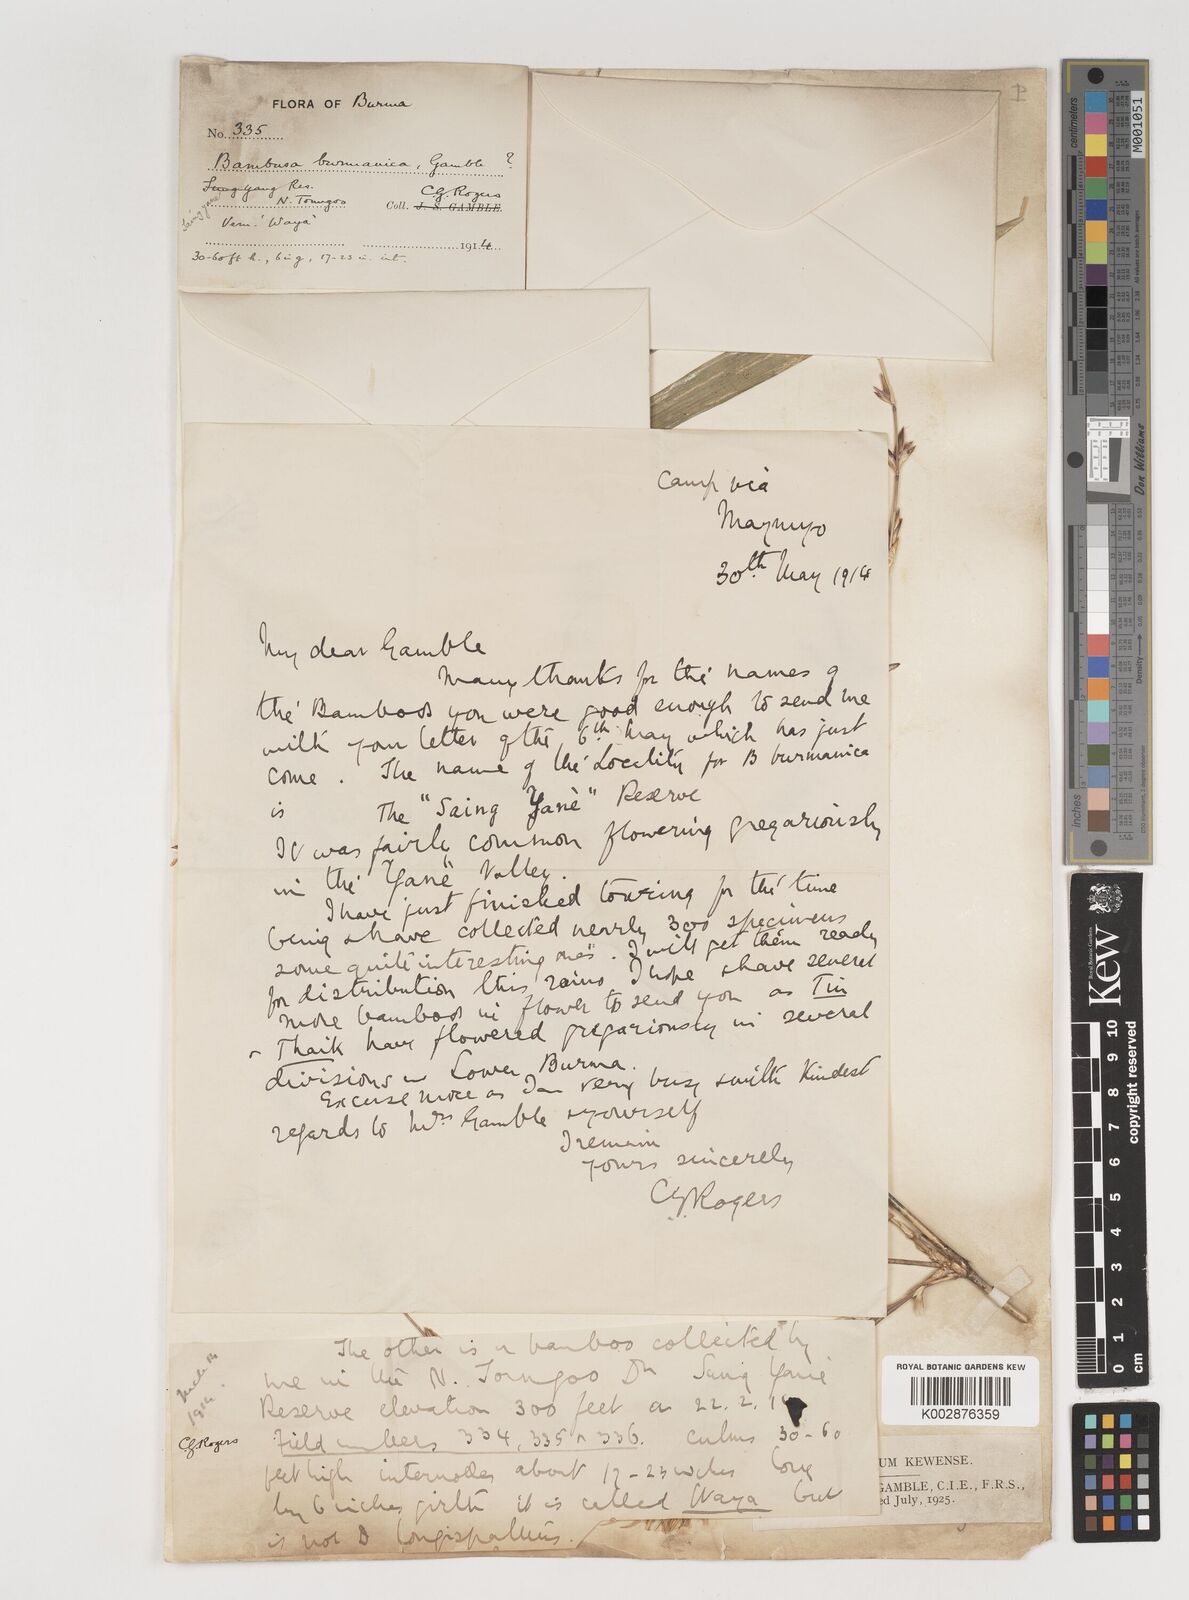 FLORA OF Burma
No. 335
Bambusa burmanica, Gamble ?
Res.
N. Toungoo
Saing yane
C.G. Rogers
Coll. J. S. GAMBLE.
Vern: 'Waya'
1914
30-60 ft h., 6 in g, 17-23 in. int.
Camp via
Maymyo
30th May 1914
My dear Gamble
Many thanks for the names of
the Bamboos you were good enough to send me
with your letter of the 6th May which has just
come. The name of the Locality for B burmanica
is The "Saing Yané" Reserve
It was fairly common flowering gregariously
in the "Yané" Valley.
I have just finished touring for the time
being & have collected nearly 300 specimens
some quite interesting ones. I will get them ready
for distribution this rains I hope & have several
more bamboos in flower to send you as Tin
& Thaik have flowered gregariously in several
divisions in Lower Burma.
Excuse more as I am very busy & with Kindest
regards to Mrs Gamble & yourself
I remain
yours sincerely
C.G. Rogers
The other is a bamboo collected by
me in the N. Toungoo Dn Saing Yané
Reserve elevation 300 feet on 22.2.14
Field numbers 334, 335 & 336. culms 30-60
feet high internodes about 17-23 inches long
by 6 inches girth it is called Waya but
is not D longispathus.
March
1914.
C.G. Rogers
UM KEWENSE.
GAMBLE, C.I.E., F.R.S.,
ed July, 1925.
ROYAL BOTANIC GARDENS KEW
K002876359
centimeters
inches
M001051
Don Williams
Density
Royal Botanic Gardens Kew
Kew
0 1 2 3 4 5 6 7 8 9 10
cm
copyright reserved